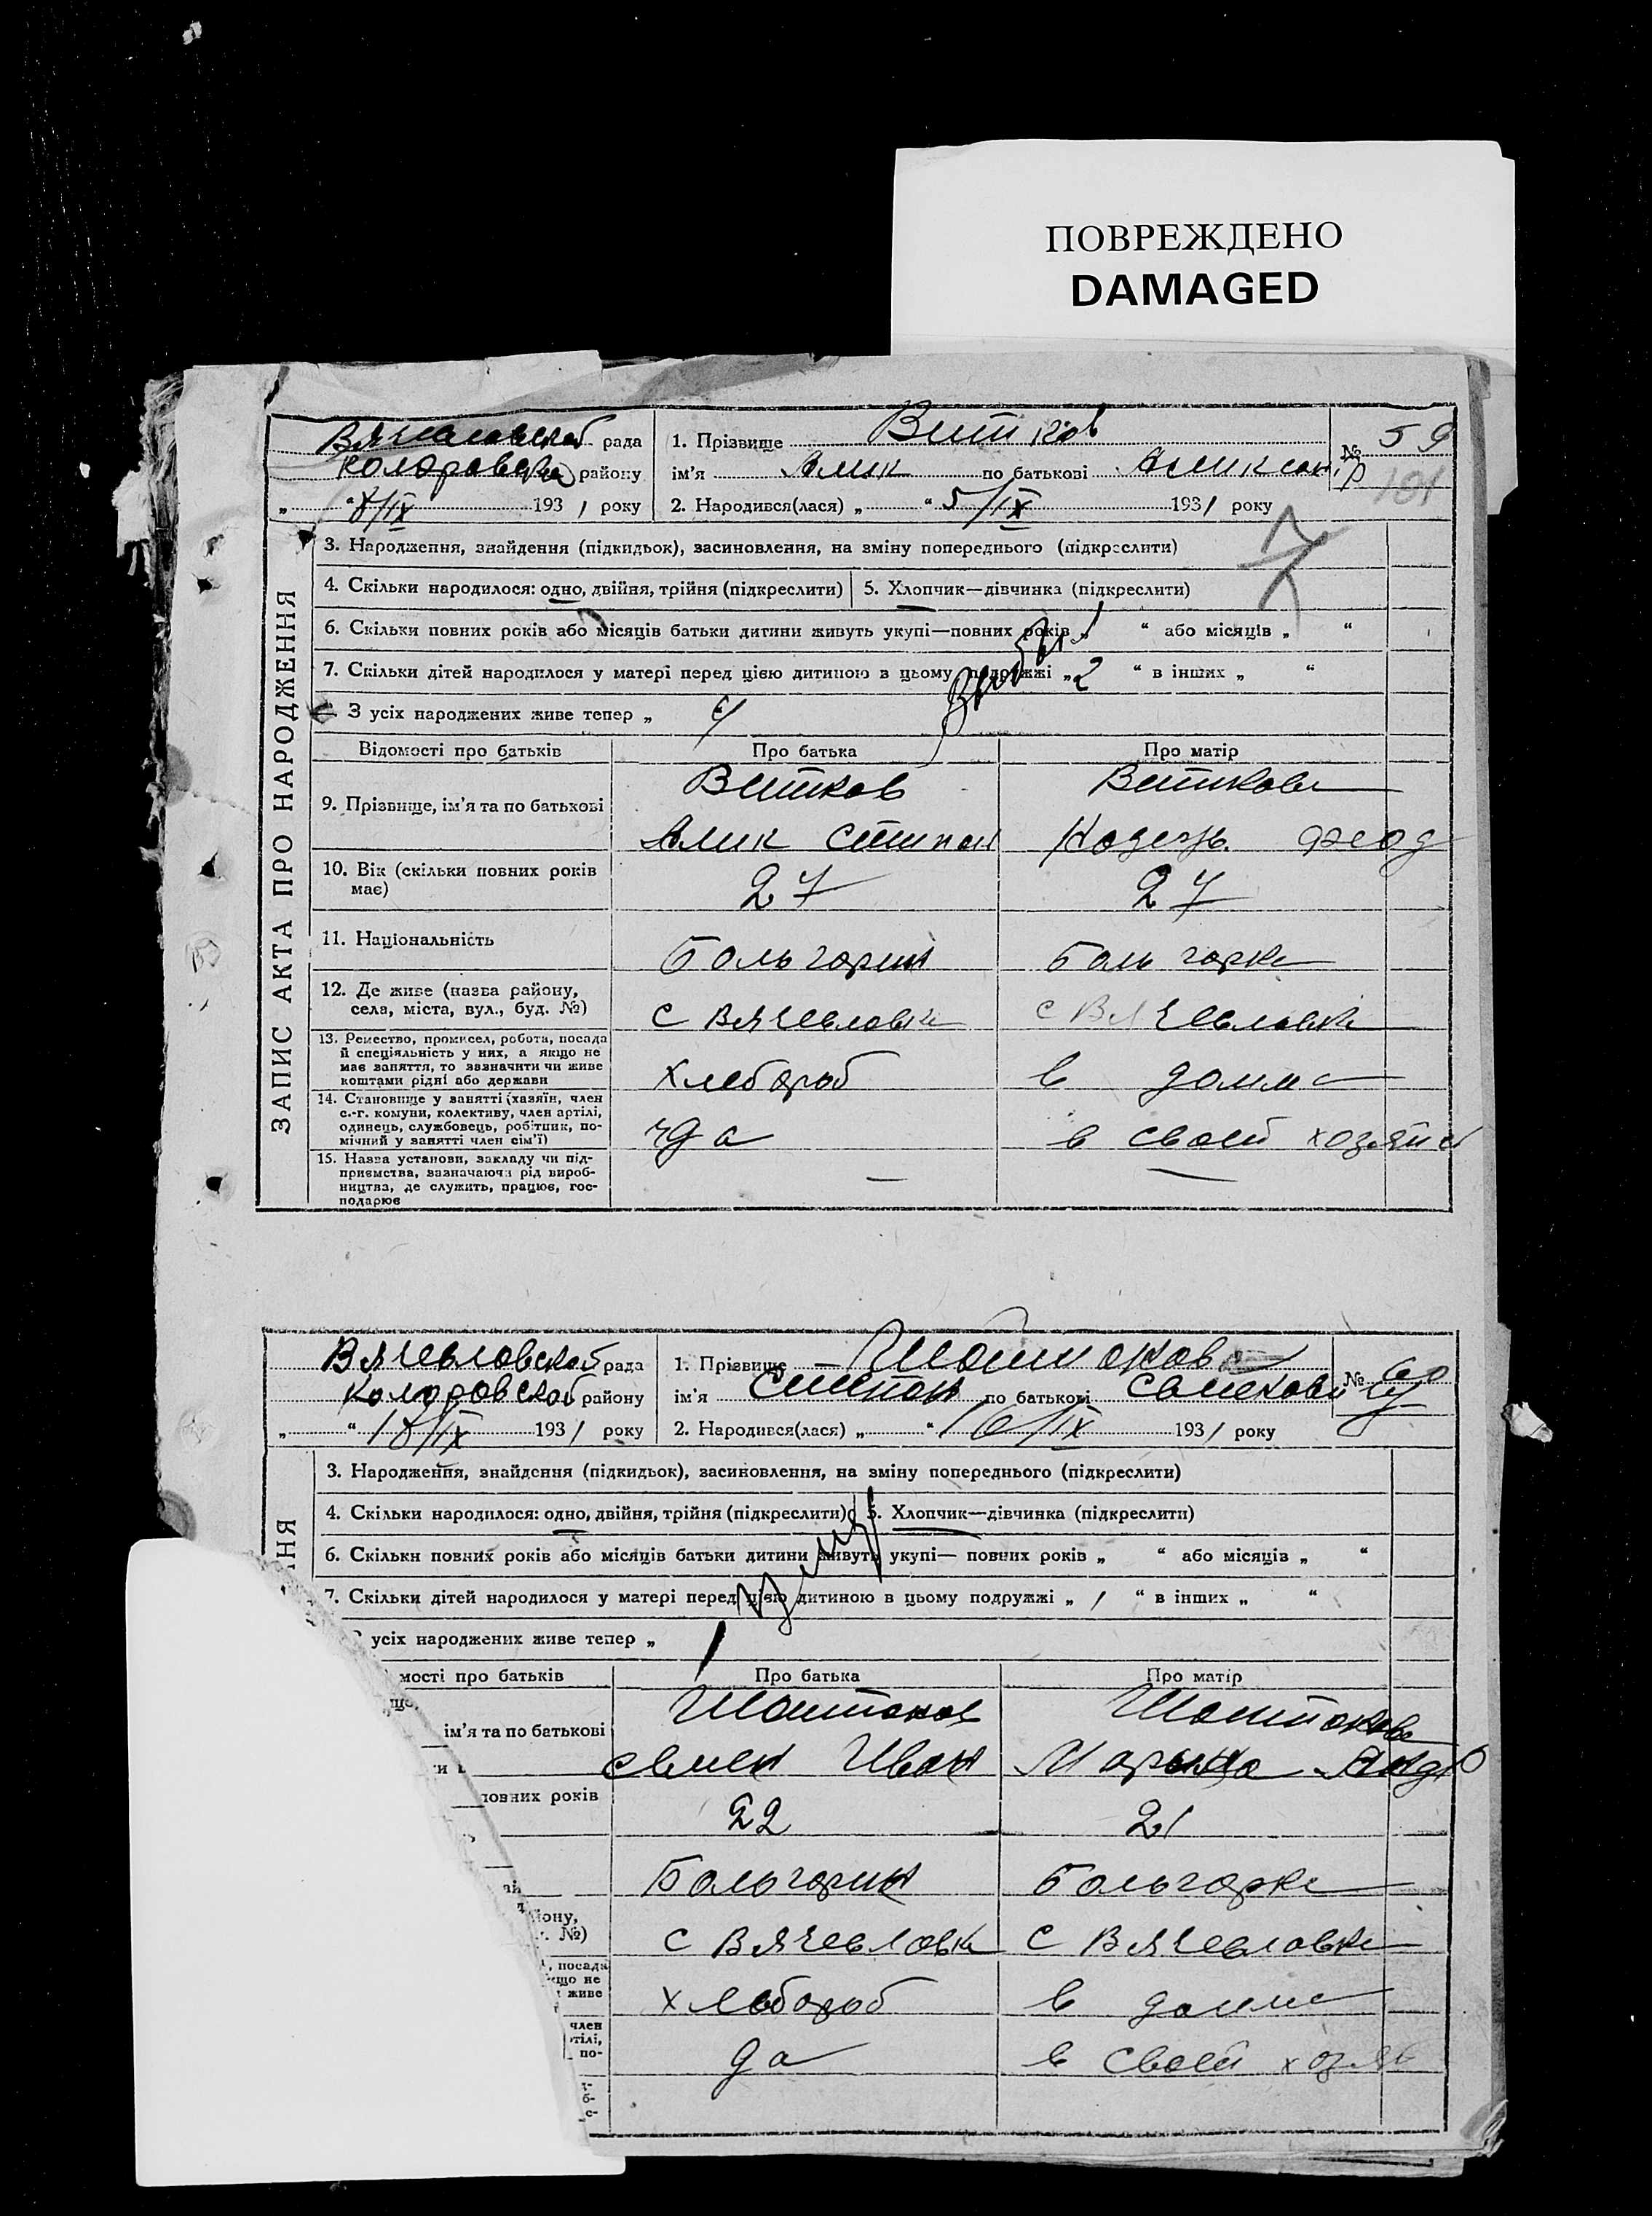 ПОВРЕЖДЕНО
DAMAGED
рада
району
„ “ 8/IX 1931 року
1. Прізвище Витков
ім’я Алик по батькові
2. Народився(лася) „ “ 5/IX 1931 року
№ 59
101
7
ЗАПИС АКТА ПРО НАРОДЖЕННЯ
3. Народження, знайдення (підкидьок), засиновлення, на зміну попереднього (підкреслити)
4. Скільки народилося: одно, двійня, трійня (підкреслити)
5. Хлопчик—дівчинка (підкреслити)
6. Скільки повних років або місяців батьки дитини живуть укупі—повних років „ “ або місяців „ “
7. Скільки дітей народилося у матері перед цією дитиною в цьому подружжі „ 2 “ в інших „ “
З усіх народжених живе тепер „
Відомості про батьків
Про батька
Про матір
9. Прізвище, ім’я та по батькові
Витков
Алик Степан
Виткова
10. Вік (скільки повних років
має)
27
27
11. Національність
Большгарин
Больгарка
12. Де живе (назва району,
села, міста, вул., буд. №)
с Вячевловка
с Вячевловка
13. Ремество, промисел, робота, посада
й спеціяльність у них, а якщо не
має заняття, то зазначити чи живе
коштами рідні або держави
Хлебороб
в доме
14. Становище у занятті (хазяїн, член
с.-г. комуни, колективу, член артілі,
одинець, службовець, робітник, по-
мічний у занятті член сім’ї)
да
в своей хозяйс
15. Назва установи, закладу чи під-
приємства, зазначаючи рід вироб-
ництва, де служить, працює, гос-
подарює
—
—
Вячевловской рада
Коларовской району
„ “ 18/IX 1931 року
1. Прізвище
ім’я Степан по батькові Семенови
2. Народився(лася) „ “ 16/IX 1931 року
№ 60
НЯ
3. Народження, знайдення (підкидьок), засиновлення, на зміну попереднього (підкреслити)
4. Скільки народилося: одно, двійня, трійня (підкреслити)
5. Хлопчик—дівчинка (підкреслити)
6. Скільки повних років або місяців батьки дитини живуть укупі— повних років „ “ або місяців „ “
7. Скільки дітей народилося у матері перед цією дитиною в цьому подружжі „ 1 “ в інших „ “
усіх народжених живе тепер „ 1
мості про батьків
Про батька
Про матір
ім’я та по батькові
Семен Иван
Марина Андр
повних років
22
21
Больгарин
Больгарка
йону,
№)
с Вячевловка
с Вячевловка
, посада
кщо не
живе
хлебороб
в доме
член
ртілі,
по-
да
в своей хозяй